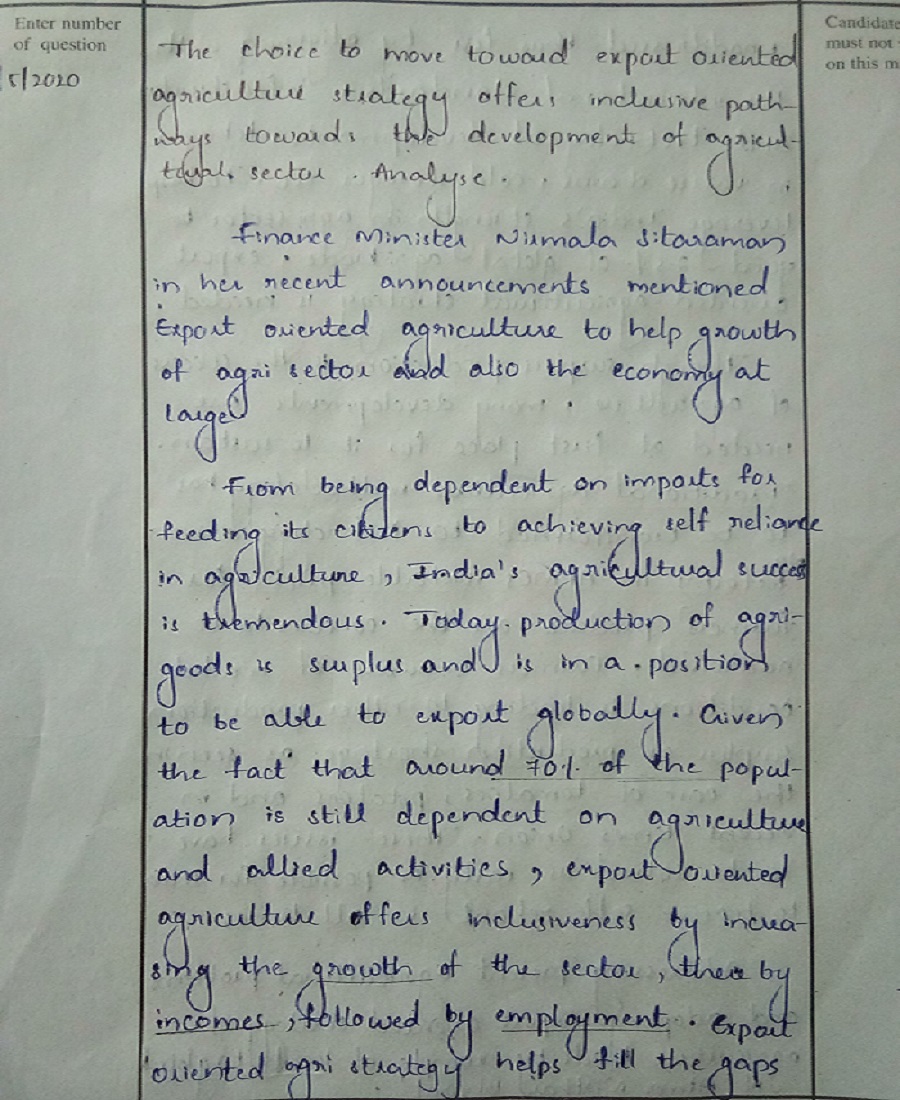 Enter number
of question
5/2020
Candidate
must not
on this m
The choice to move toward export oriented
agriculture strategy offers inclusive path-
ways towards the development of agricul-
tural sector. Analyse.
Finance Minister Nirmala Sitaraman
in her recent announcements mentioned
Export oriented agriculture to help growth
of agri sector and also the economy at
large
From being dependent on imports for
feeding its citizens to achieving self reliance
in agriculture, India's agricultural success
is tremendous. Today production of agri-
goods is surplus and is in a position
to be able to export globally. Given
the fact that around 70% of the popul-
ation is still dependent on agriculture
and allied activities, export oriented
agriculture offers inclusiveness by increa-
sing the growth of the sector, there by
incomes, followed by employment. Export
oriented agri strategy helps fill the gaps